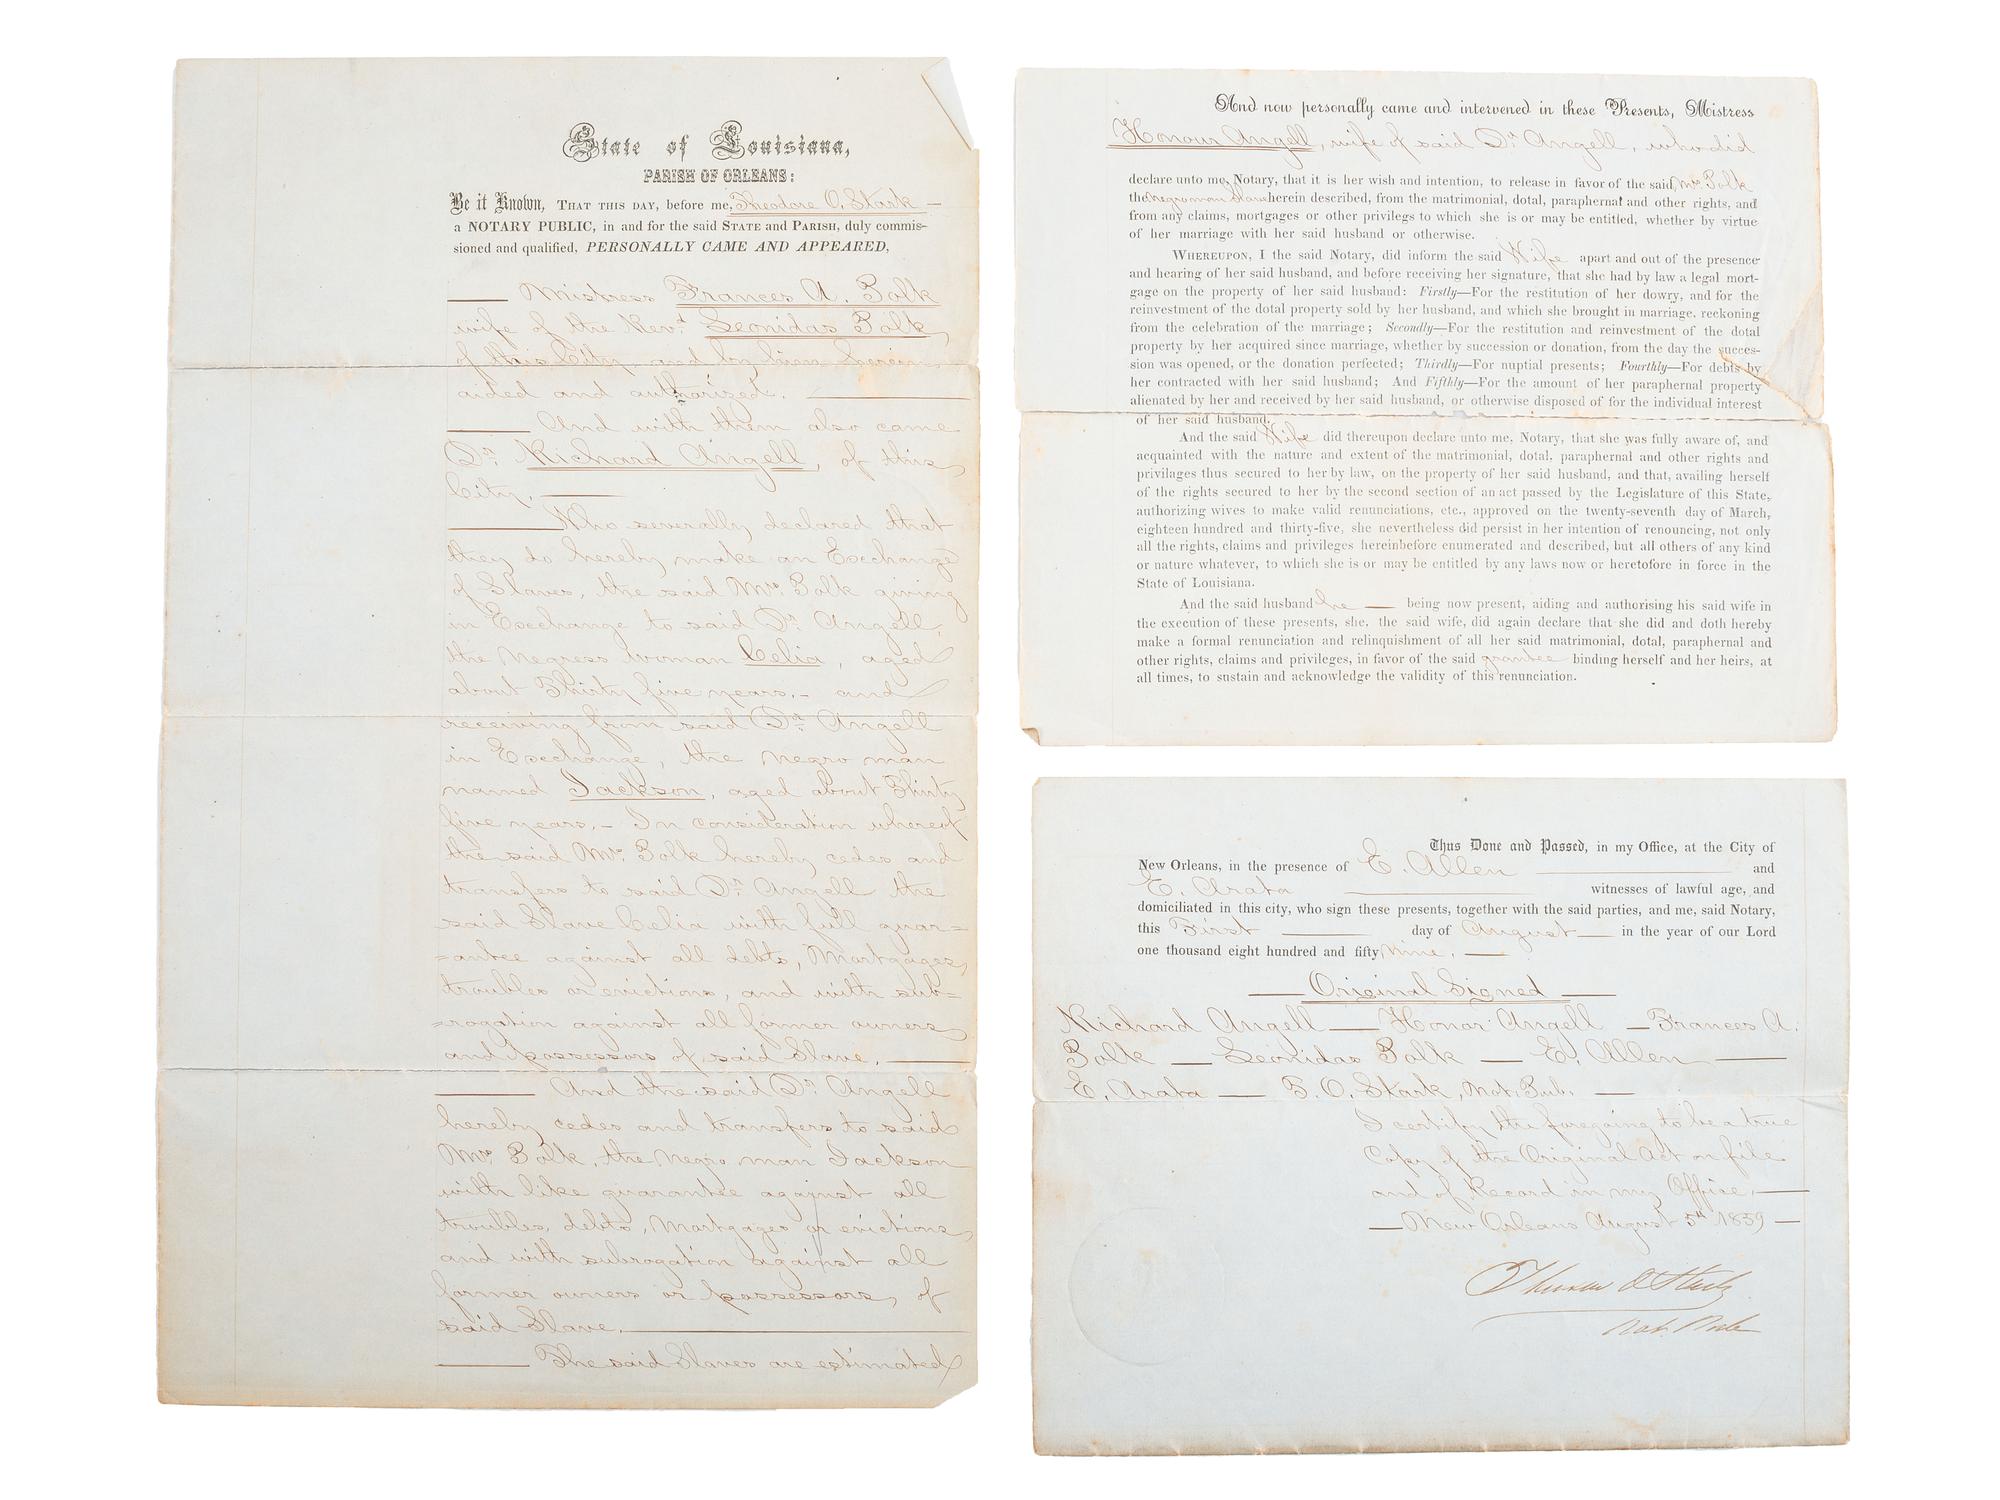 State of Louisiana,
PARISH OF ORLEANS:
Be it Known, THAT THIS DAY, before me, Theodore O. Stark —
a NOTARY PUBLIC, in and for the said STATE and PARISH, duly commis-
sioned and qualified, PERSONALLY CAME AND APPEARED,
Mistress Frances A. Polk
wife of the Revd. Leonidas Polk
of this City, and by him herein
aided and authorized.
And with them also came
Dr. Richard Angell, of this
City.
Who severally declared that
they do hereby make an Exchange
of Slaves, the said Mrs. Polk giving
in Exchange to said Dr. Angell,
the Negress woman Celia, aged
about Thirty five years, – and
receiving from said Dr. Angell
in Exchange, the negro man
named Jackson, aged about Thirty
five years, – In consideration whereof
the said Mrs. Polk hereby cedes and
transfers to said Dr. Angell the
said Slave Celia with full guar=
=antee against all debts, Mortgages,
troubles or evictions, and with sub=
=rogation against all former owners
and possessors of said Slave.
And the said Dr. Angell
hereby cedes and transfers to said
Mrs. Polk, the Negro man Jackson
with like guarantee against all
troubles, debts, Mortgages or evictions,
and with subrogation against all
former owners or possessors, of
said Slave.
The said Slaves are estimated
And now personally came and intervened in these Presents, Mistress
Honour Angell, wife of said Dr. Angell, who did
declare unto me, Notary, that it is her wish and intention, to release in favor of the said Mrs. Polk
the negro man Slave herein described, from the matrimonial, dotal, paraphernal and other rights, and
from any claims, mortgages or other privilegs to which she is or may be entitled, whether by virtue
of her marriage with her said husband or otherwise.
WHEREUPON, I the said Notary, did inform the said Wife apart and out of the presence
and hearing of her said husband, and before receiving her signature, that she had by law a legal mort-
gage on the property of her said husband: Firstly—For the restitution of her dowry, and for the
reinvestment of the dotal property sold by her husband, and which she brought in marriage, reckoning
from the celebration of the marriage; Secondly—For the restitution and reinvestment of the dotal
property by her acquired since marriage, whether by succession or donation, from the day the succes-
sion was opened, or the donation perfected; Thirdly—For nuptial presents; Fourthly—For debts by
her contracted with her said husband; And Fifthly—For the amount of her paraphernal property
alienated by her and received by her said husband, or otherwise disposed of for the individual interest
of her said husband.
And the said Wife did thereupon declare unto me, Notary, that she was fully aware of, and
acquainted with the nature and extent of the matrimonial, dotal, paraphernal and other rights and
privilages thus secured to her by law, on the property of her said husband, and that, availing herself
of the rights secured to her by the second section of an act passed by the Legislature of this State,
authorizing wives to make valid renunciations, etc., approved on the twenty-seventh day of March,
eighteen hundred and thirty-five, she nevertheless did persist in her intention of renouncing, not only
all the rights, claims and privileges hereinbefore enumerated and described, but all others of any kind
or nature whatever, to which she is or may be entitled by any laws now or heretofore in force in the
State of Louisiana.
And the said husband he — being now present, aiding and authorising his said wife in
the execution of these presents, she, the said wife, did again declare that she did and doth hereby
make a formal renunciation and relinquishment of all her said matrimonial, dotal, paraphernal and
other rights, claims and privileges, in favor of the said grantee binding herself and her heirs, at
all times, to sustain and acknowledge the validity of this renunciation.
Thus Done and Passed, in my Office, at the City of
New Orleans, in the presence of E. Allen — and
E. Arata — witnesses of lawful age, and
domiciliated in this city, who sign these presents, together with the said parties, and me, said Notary,
this First — day of August — in the year of our Lord
one thousand eight hundred and fifty nine. —
— Original Signed —
Richard Angell — Honor Angell — Frances A.
Polk — Leonidas Polk — E. Allen —
E. Arata — T. O. Stark, Not. Pub. —
I certify the foregoing to be a true
Copy of the Original Act on file
and of Record in my Office. —
— New Orleans August 5th 1859 —
Theodore O Stark
Not. Pub